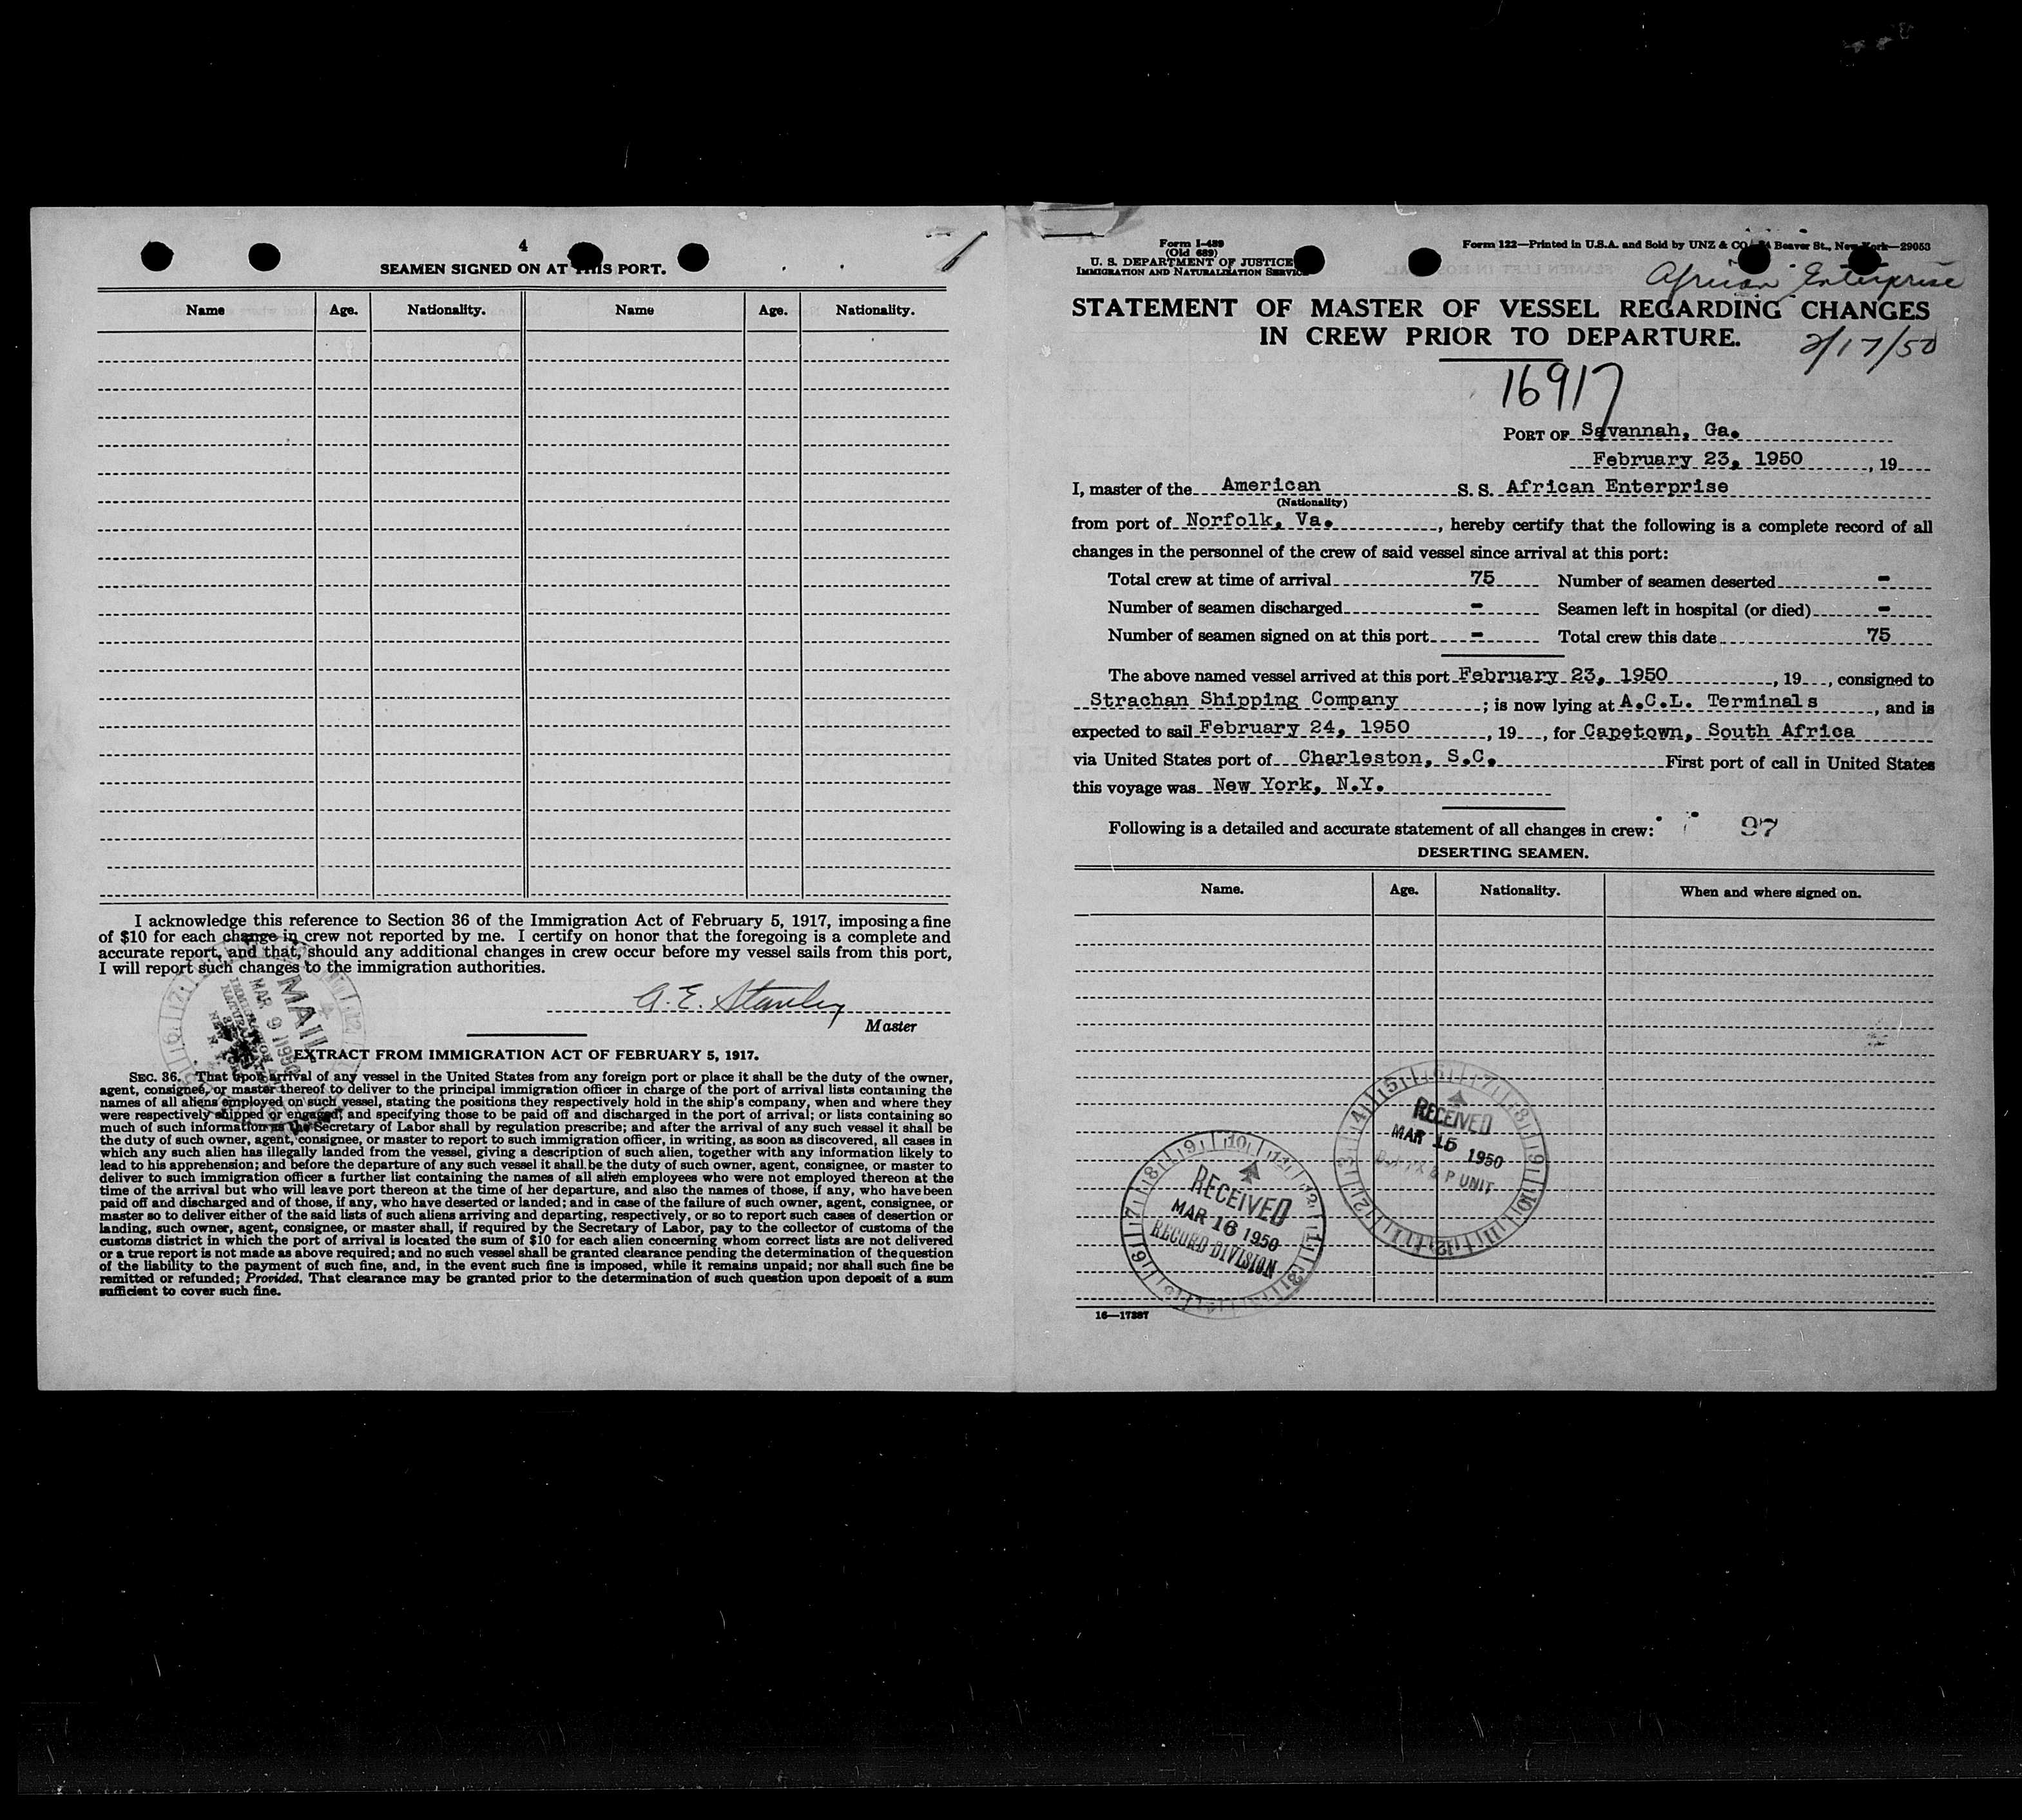 4
SEAMEN SIGNED ON AT THIS PORT.
Name Age. Nationality. Name Age. Nationality.
I acknowledge this reference to Section 36 of the Immigration Act of February 5, 1917, imposing a fine
of $10 for each change in crew not reported by me. I certify on honor that the foregoing is a complete and
accurate report, and that, should any additional changes in crew occur before my vessel sails from this port,
I will report such changes to the immigration authorities.
A. E. Stanley
Master
MAIL
MAR 9 1950
IMMIGRATION
EXTRACT FROM IMMIGRATION ACT OF FEBRUARY 5, 1917.
SEC. 36. That upon arrival of any vessel in the United States from any foreign port or place it shall be the duty of the owner,
agent, consignee, or master thereof to deliver to the principal immigration officer in charge of the port of arrival lists containing the
names of all aliens employed on such vessel, stating the positions they respectively hold in the ship's company, when and where they
were respectively shipped or engaged, and specifying those to be paid off and discharged in the port of arrival; or lists containing so
much of such information as the Secretary of Labor shall by regulation prescribe; and after the arrival of any such vessel it shall be
the duty of such owner, agent, consignee, or master to report to such immigration officer, in writing, as soon as discovered, all cases in
which any such alien has illegally landed from the vessel, giving a description of such alien, together with any information likely to
lead to his apprehension; and before the departure of any such vessel it shall be the duty of such owner, agent, consignee, or master to
deliver to such immigration officer a further list containing the names of all alien employees who were not employed thereon at the
time of the arrival but who will leave port thereon at the time of her departure, and also the names of those, if any, who have been
paid off and discharged and of those, if any, who have deserted or landed; and in case of the failure of such owner, agent, consignee, or
master so to deliver either of the said lists of such aliens arriving and departing, respectively, or so to report such cases of desertion or
landing, such owner, agent, consignee, or master shall, if required by the Secretary of Labor, pay to the collector of customs of the
customs district in which the port of arrival is located the sum of $10 for each alien concerning whom correct lists are not delivered
or a true report is not made as above required; and no such vessel shall be granted clearance pending the determination of the question
of the liability to the payment of such fine, and, in the event such fine is imposed, while it remains unpaid; nor shall such fine be
remitted or refunded; Provided, That clearance may be granted prior to the determination of such question upon deposit of a sum
sufficient to cover such fine.
Form I-489
(Old 689)
U. S. DEPARTMENT OF JUSTICE
IMMIGRATION AND NATURALIZATION SERVICE
Form 122—Printed in U.S.A. and Sold by UNZ & CO. Beaver St., New York—29053
African Enterprise
STATEMENT OF MASTER OF VESSEL REGARDING CHANGES
IN CREW PRIOR TO DEPARTURE.
2/17/50
16917
PORT OF Savannah, Ga.
February 23, 1950, 19
I, master of the American S. S. African Enterprise
(Nationality)
from port of Norfolk, Va., hereby certify that the following is a complete record of all
changes in the personnel of the crew of said vessel since arrival at this port:
Total crew at time of arrival 75 Number of seamen deserted -
Number of seamen discharged - Seamen left in hospital (or died) -
Number of seamen signed on at this port - Total crew this date 75
The above named vessel arrived at this port February 23, 1950, 19, consigned to
Strachan Shipping Company; is now lying at A.C.L. Terminals, and is
expected to sail February 24, 1950, 19, for Capetown, South Africa
via United States port of Charleston, S.C. First port of call in United States
this voyage was New York, N.Y.
Following is a detailed and accurate statement of all changes in crew: 97
DESERTING SEAMEN.
Name. Age. Nationality. When and where signed on.
RECEIVED
MAR 15 1950
& P UNIT
RECEIVED
MAR 16 1950
RECORD DIVISION
16—17387